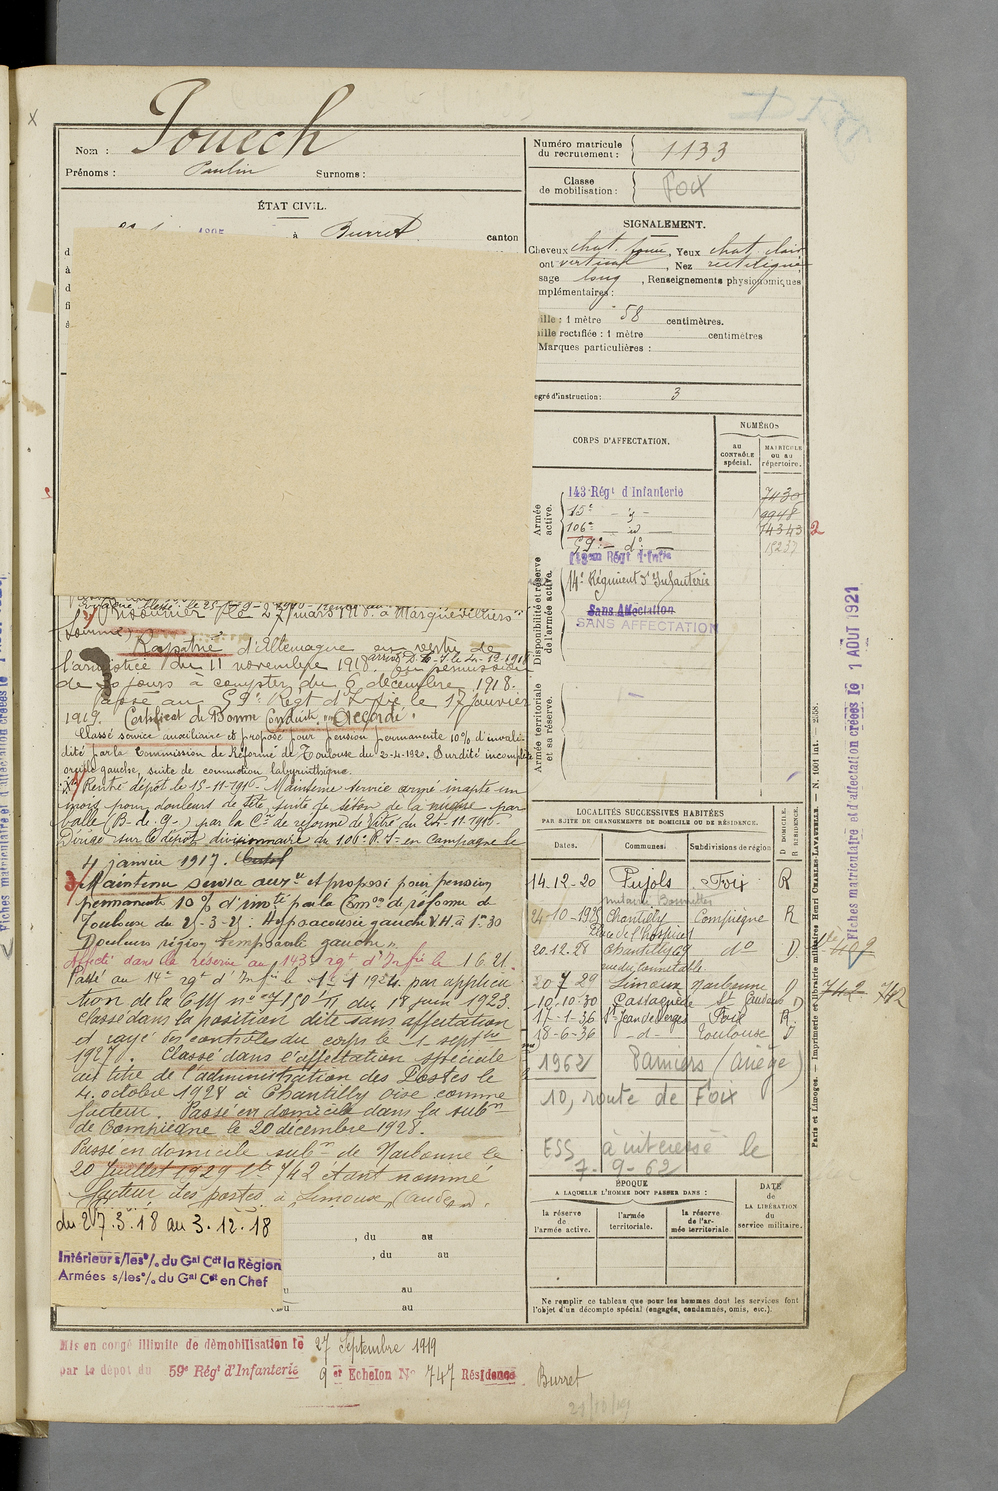 Nom : Pouech
Prénoms : Paulin Surnoms :
ÉTAT CIVIL.
à Burret canton
Numéro matricule du recrutement : 1133
Classe de mobilisation : Foix
SIGNALEMENT.
Cheveux chat. foncé, Yeux chat. clair
ont vertical, Nez rectiligne
sage long, Renseignements physionomiques
mplémentaires :
ille : 1 mètre 58 centimètres.
ille rectifiée : 1 mètre centimètres
Marques particulières :
egré d'instruction : 3
CORPS D'AFFECTATION.
NUMÉROS
au CONTRÔLE spécial.
MATRICULE ou au répertoire.
Armée active.
143 Régt d'Infanterie 7430
15e - d° - 9948
106e - d° 74343 2
59e - d° - 15237
Disponibilité et réserve de l'armée active.
143e Régt d'Infie
14e Régiment d'Infanterie
Sans Affectation
SANS AFFECTATION
Armée territoriale et sa réserve.
Prisonnier le 27 mars 1918 à Marquevillers
Somme
Rapatrié d'Allemagne en vertu de
l'armistice du 11 novembre 1918 arrivé D. T. I. le 4-12-1918 en permission
de 30 jours à compter du 6 décembre 1918.
Passé au 59e Régt d'Infie le 17 janvier
1919. Certificat de Bonne Conduite "Accordé"
Classé service auxiliaire et proposé pour pension permanente 10% d'invali-
dité par la Commission de Réforme de Toulouse du 2-4-1920. Surdité incomplète
oreille gauche, suite de commotion labyrinthique.
Rentré dépôt le 15-11-1916. Maintenu service armé inapte un
mois pour douleurs de tête, suite de séton de la nuque par
balle (B. de g.) par la Con de réforme de Vitré du 24-11-1916.
Dirigé sur le dépôt divisionnaire du 106e R. I. en campagne le
4 janvier 1917.
3/ Maintenu service auxre et proposé pour pension
permanente 10% d'invté par la Comon de réforme de
Toulouse du 2-3-21. Hypoacousie gauche V.H. à 1m30
Douleurs région temporale gauche".
Affecté dans la réserve au 143e rgt d'Infie le 1.6.21.
Passé au 14e rgt d'Infie le 1-1-1924 par applica
tion de la CM n° 7150 du 18 juin 1923.
Classé dans la position dite sans affectation
et rayé des contrôles du corps le 1 septbre
1927. Classé dans l'affectation spéciale
au titre de l'administration des Postes le
4. octobre 1928 à Chantilly Oise comme
facteur. Passé en domicile dans la subon
de Compiègne le 20 décembre 1928.
Passé en domicile subon de Narbonne le
20 juillet 1929 Le 742 étant nommé
facteur des postes à Limoux (Aude).
du 27.3.18 au 3.12.18
Intérieur s/les °/. du Gal Cdt la Région
Armées s/les °/. du Gal Cdt en Chef
, du au
, du au
au
du au
LOCALITÉS SUCCESSIVES HABITÉES
PAR SUITE DE CHANGEMENTS DE DOMICILE OU DE RÉSIDENCE.
Dates. Communes. Subdivisions de région D DOMICILE. R RÉSIDENCE.
14.12-20 Pujols Foix R
24-10-1925 Chantilly Compiègne R
Place de l'hospice
20.12.28 Chantilly 69 d° D.
rue du Connétable
20 7 29 Limoux Narbonne D
742 742
10-10-30 Castagnède St Gaudens D
17-1-36 St Jean de Verges Foix R
18-6-36 -d- Toulouse D
1962 Pamiers (Ariège)
10, route de Foix
ESS à intéressé le
7-9-62
ÉPOQUE
A LAQUELLE L'HOMME DOIT PASSER DANS :
la réserve de l'armée active.
l'armée territoriale.
la réserve de l'armée territoriale.
DATE de LA LIBÉRATION du service militaire.
Ne remplir ce tableau que pour les hommes dont les services font
l'objet d'un décompte spécial (engagés, condamnés, omis, etc.).
Mis en congé illimité de démobilisation le 27 Septembre 1919
par le dépôt du 59e Régt d'Infanterie 9 er Echelon N° 747 Résidence Burret
Paris et Limoges. — Imprimerie et librairie militaires Henri CHARLES-LAVAUZELLE. — N. 1001 int. — 2558.
Fiches matriculaire et d'affectation créées le 1 AOUT 1921